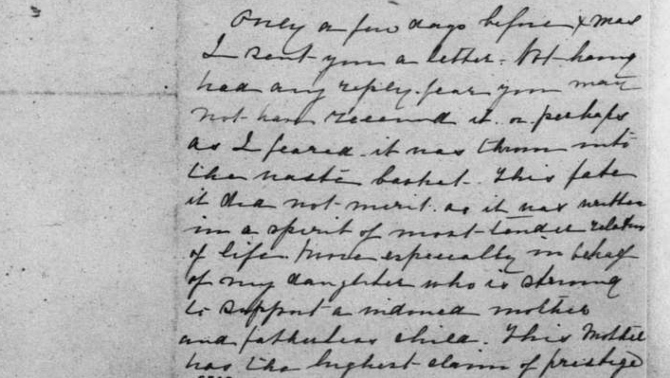 Only a few days before Xmas
I sent you a letter. Not having
had any reply. fear you may
not have received it. or perhaps
as I feared. it was thrown into
the waste basket. This fate
it did not merit. as it was written
in a spirit of most tender relations
of life. More especially in behalf
of my daughter who is striving
to support a widowed mother
and fatherless child. This Mother
has the highest claim of prestige